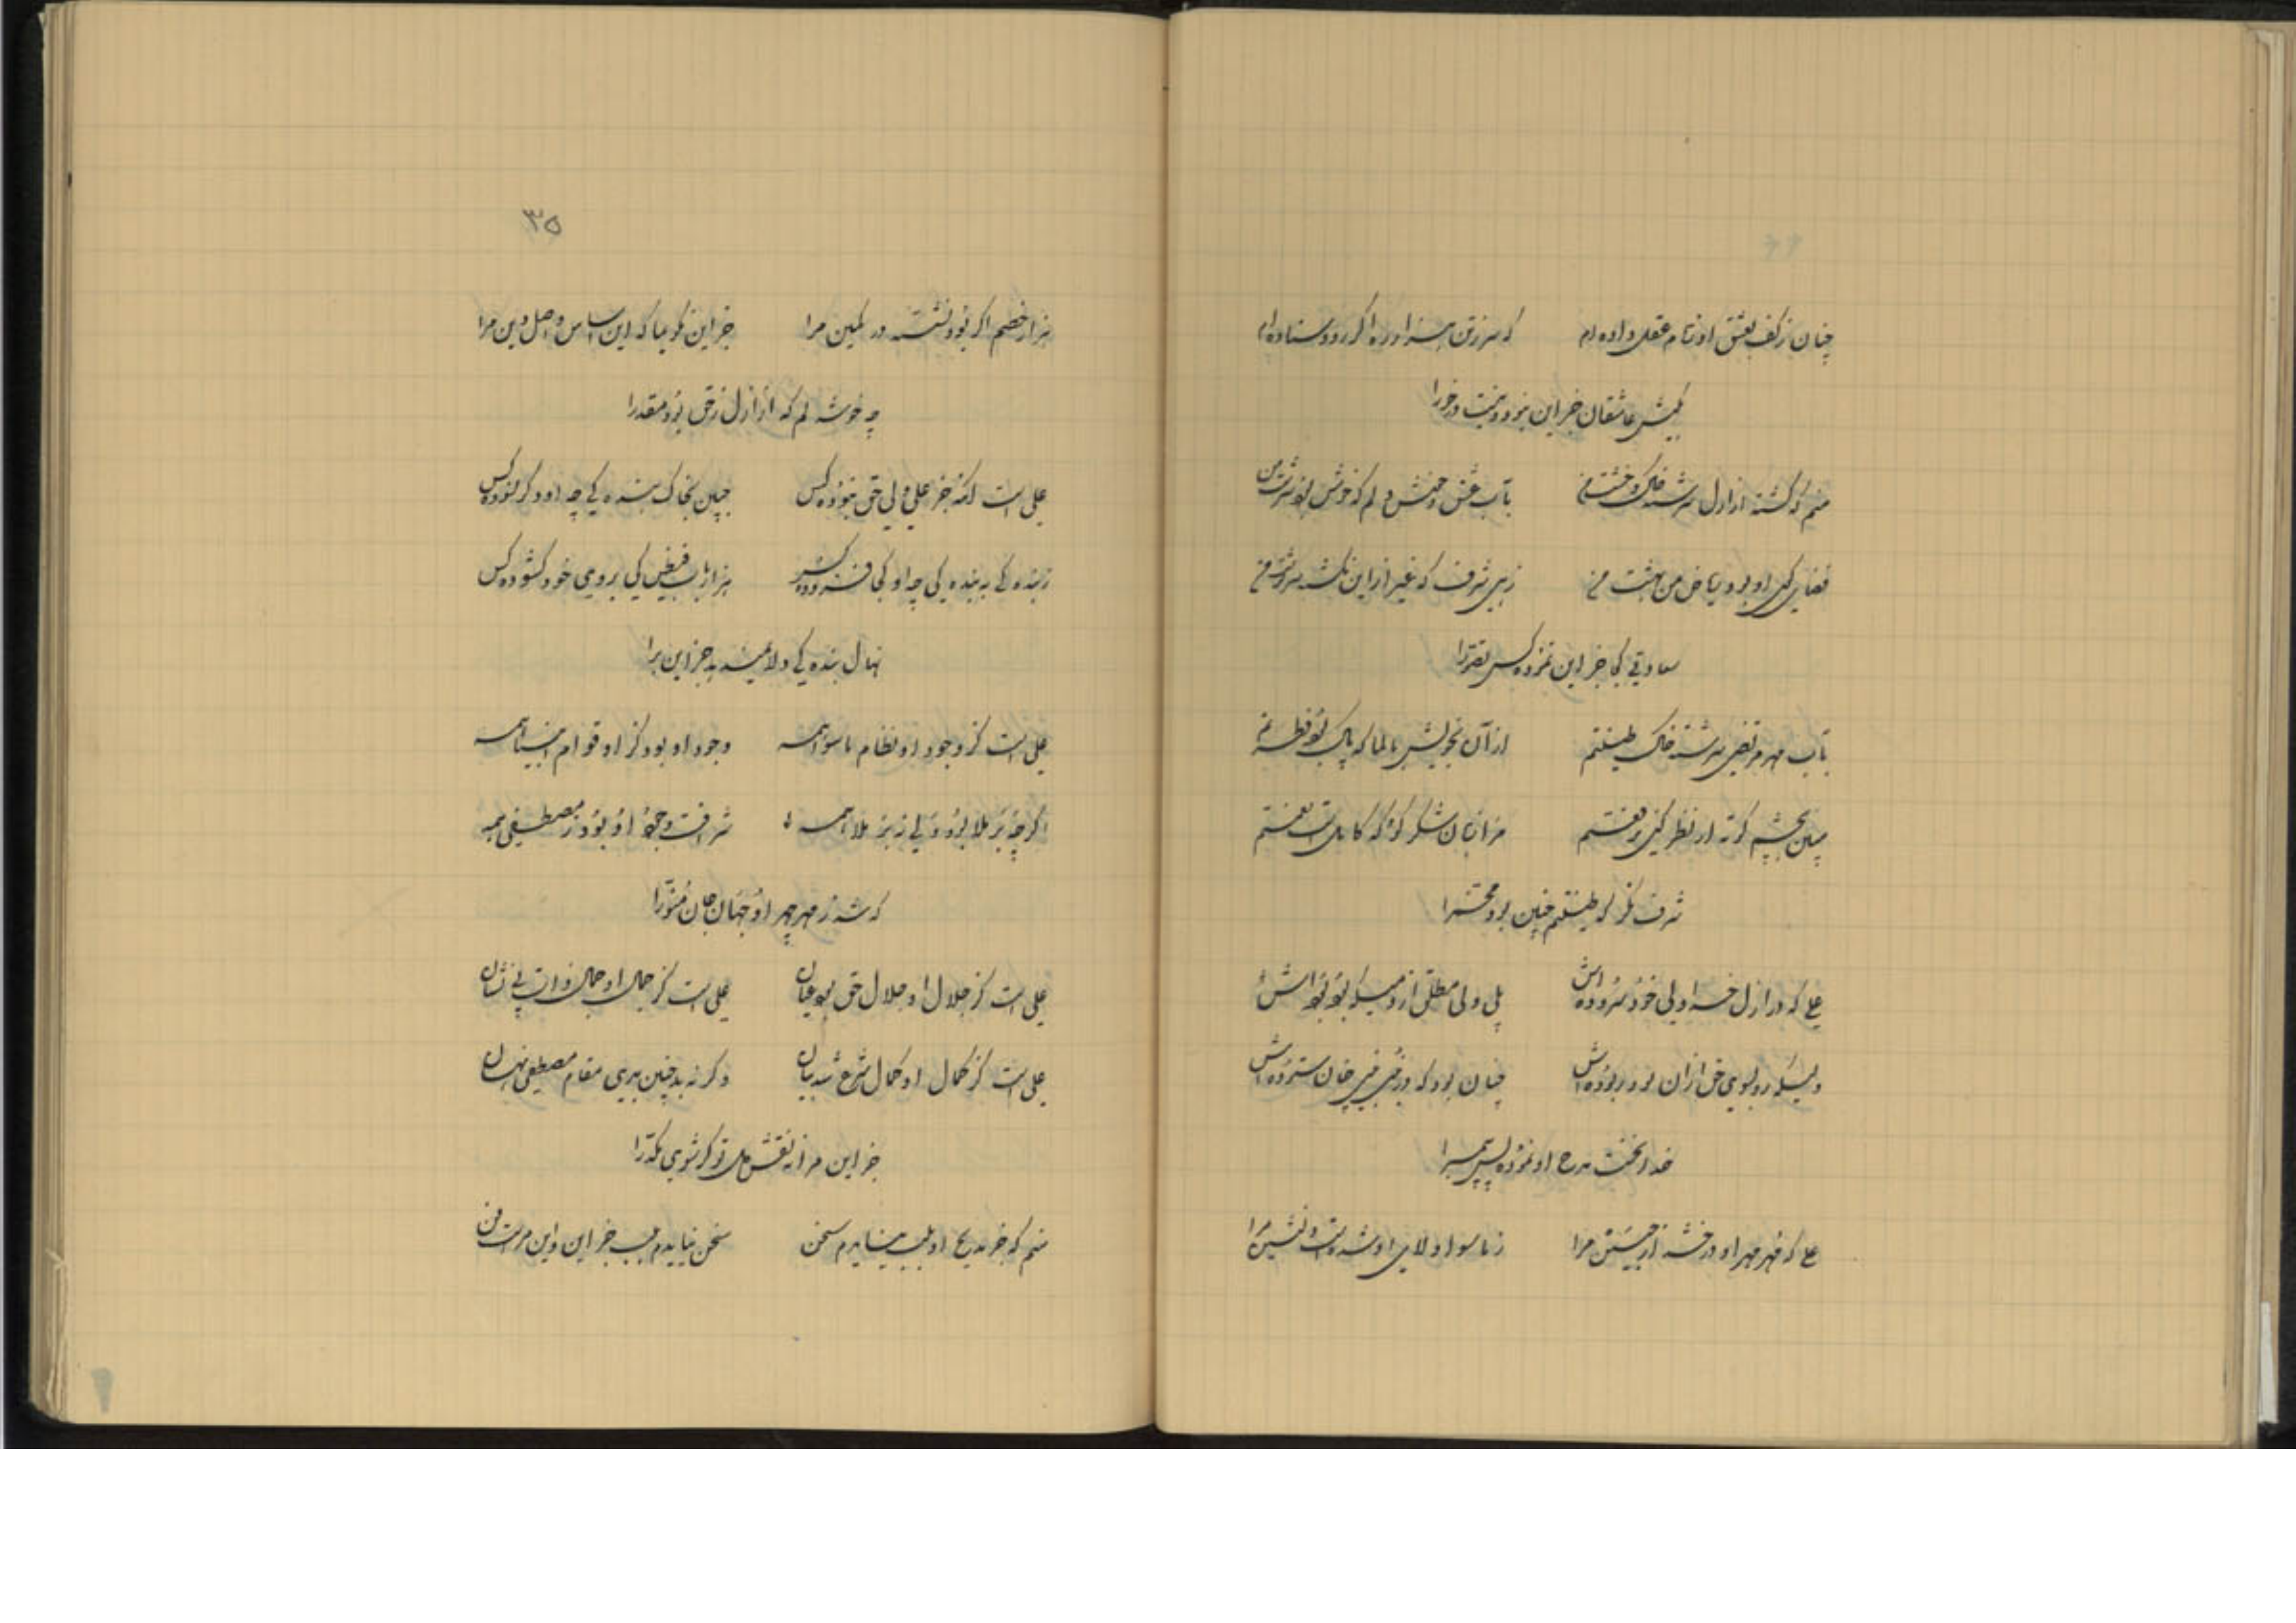 چنان ز کف بعشق او زمام عقل داده‌ام که سر زتن بسزد اورا اگر رود ستاده‌ام
بکیش عاشقان جز این نبود و نیست در خورا
منم که گشته از ازل سرشته خاک و خشت من بآب عشق و دلم که خوش بود سرشت من
فضای کوی او بود ریاض من بهشت من زهی شرف که غیر از این نگشته سرنوشت من
سعادتی کجا جز این نموده کس تصورا
بآب مهر مرتضی سرشته خاک طینتم از آن بخویش بالما که پاک بود فطرتم
مبین بچشم کوته ار نظر کنی رفعتم مرا زبان شکر کو که کامل است نعمتم
شرف نگر که طینتم چنین بود مخمرا
علی که در ازل خدا ولی خود سروده‌اش بلی ولی مطلق از وسیله بود بوده‌اش
وسیله رو بسوی حق از آن بود ربوده‌اش چنان بود که در نبی نبی چنان ستوده‌اش
خدا نخست مدح او نموده پس پیمبرا
علی که مهر مهر او درخشد از جبین مرا ز ماسوا ولای او شده است دلنشین مرا
۳۵
هزار خصم اگر بود نشسته در کمین مرا جز این نگویما که این اساس و اصل دین مرا
چه خوشدلم که از ازل زحق بود مقدرا
علی است آنکه جز علی ولی حق نبوده کس جبین بخاک بنده‌گی چه او دگر نسوده کس
ز بنده‌گی به بنده‌گی چه او کجا فزوده کس هزار باب فیض کی بروی خود گشوده کس
نهال بنده‌گی ولا نمیدهد جز این برا
علی است کز وجود او نظام ماسوا همه وجود او بود کز او قوام انبیا همه
اگرچه بر ملا بود ولی نه بر ملا همه شرافت وجود او بود ز مصطفی همه
که شد ز مهر چهر او جهان جان منورا
علی است کز جلال او جلال حق بود عیان علی است کز جمال او جمال ذات بی نشان
علی است کز کمال او کمال شرع شد بیان وگرنه بد چنین بری مقام مصطفی نهان
جز این مرا نه نقش دل تو گر شوی مکدرا
منم که جز مدیح او بلب نیایدم سخن سخن نیایدم بلب جز این و این مراست فن